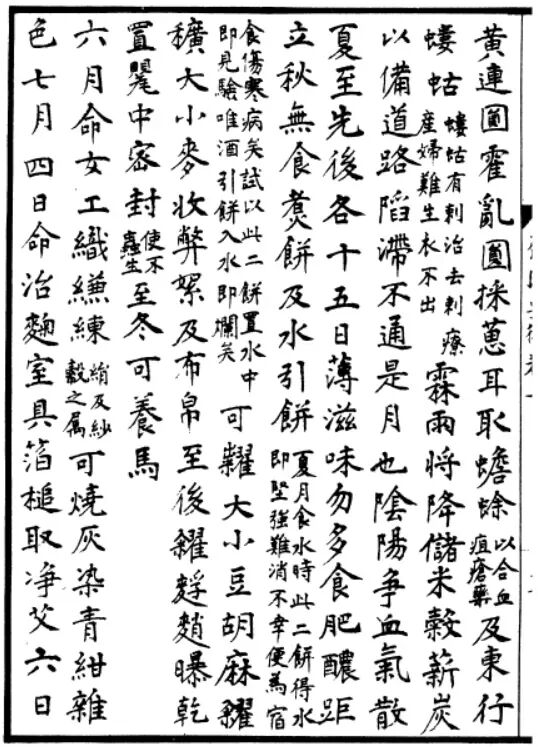 黃連圓霍亂圓採葸耳取蟾蜍以合血疽瘡藥及東行
螻蛄螻蛄有刺治去刺療產婦難生衣不出霖雨將降儲米穀薪炭
以備道路陷滯不通是月也陰陽爭血氣散
夏至先後各十五日薄滋味勿多食肥醲距
立秋無食煑餅及水引餅夏月食水時此二餅得水即堅強難消不幸便為宿
食傷寒病矣試以此二餅置水中即見驗唯酒引餅入水即爛矣可糶大小豆胡麻糴
穬大小麥收弊絮及布帛至後糴麩䴬曝乾
置甖中密封使不蟲生至冬可養馬
六月命女工織縑練絹及紗縠之属可燒灰染青紺雜
色七月四日命治麴室具箔槌取净艾六日